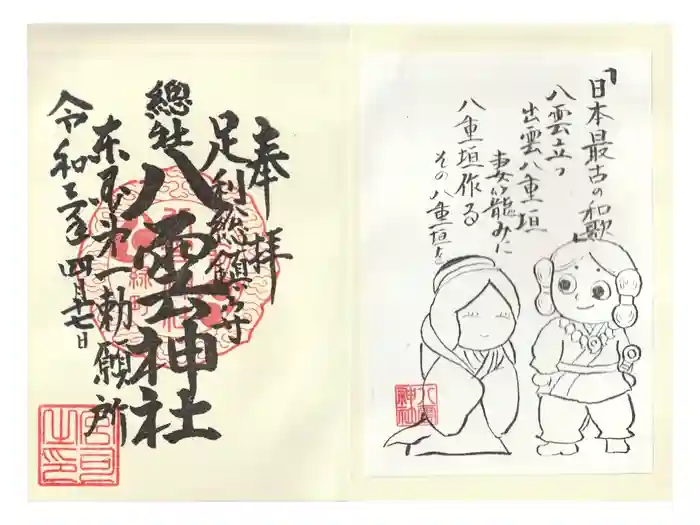 「日本最古の和歌
八雲立つ
出雲八重垣
妻籠みに
八重垣作る
その八重垣を
八雲神社
奉拝
足利総鎮守
總社
八雲神社
東国第一勅願所
令和三年四月廿七日